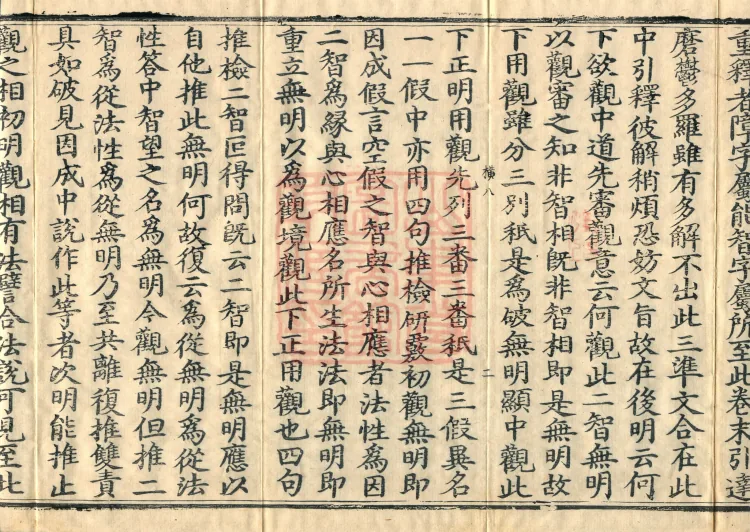 重釋者障字屬能智字屬所至此卷末引達
磨鬱多羅雖有多解不出此三準文合在此
中引釋彼解稍煩恐妨文旨故在後明云何
下欲觀中道先審觀意云何觀此二智無明
以觀審之知非智相旣非智相即是無明故
下用觀雖分三別秖是為破無明顯中觀此
橫八
二
下正明用觀先列三番三番秖是三假異名
一一假中亦用四句推檢研覈初觀無明即
因成假言空假之智與心相應者法性為因
二智為緣與心相應名所生法法即無明即
重立無明以為觀境觀此下正用觀也四句
推檢二智叵得問旣云二智即是無明應以
自他推此無明何故復云為從無明為從法
性答中智望之名為無明今觀無明但推二
智為從法性為從無明乃至共離復推雙責
具如破見因成中說作此等者次明能推止
觀之相初明觀相有法譬合法說可見至此